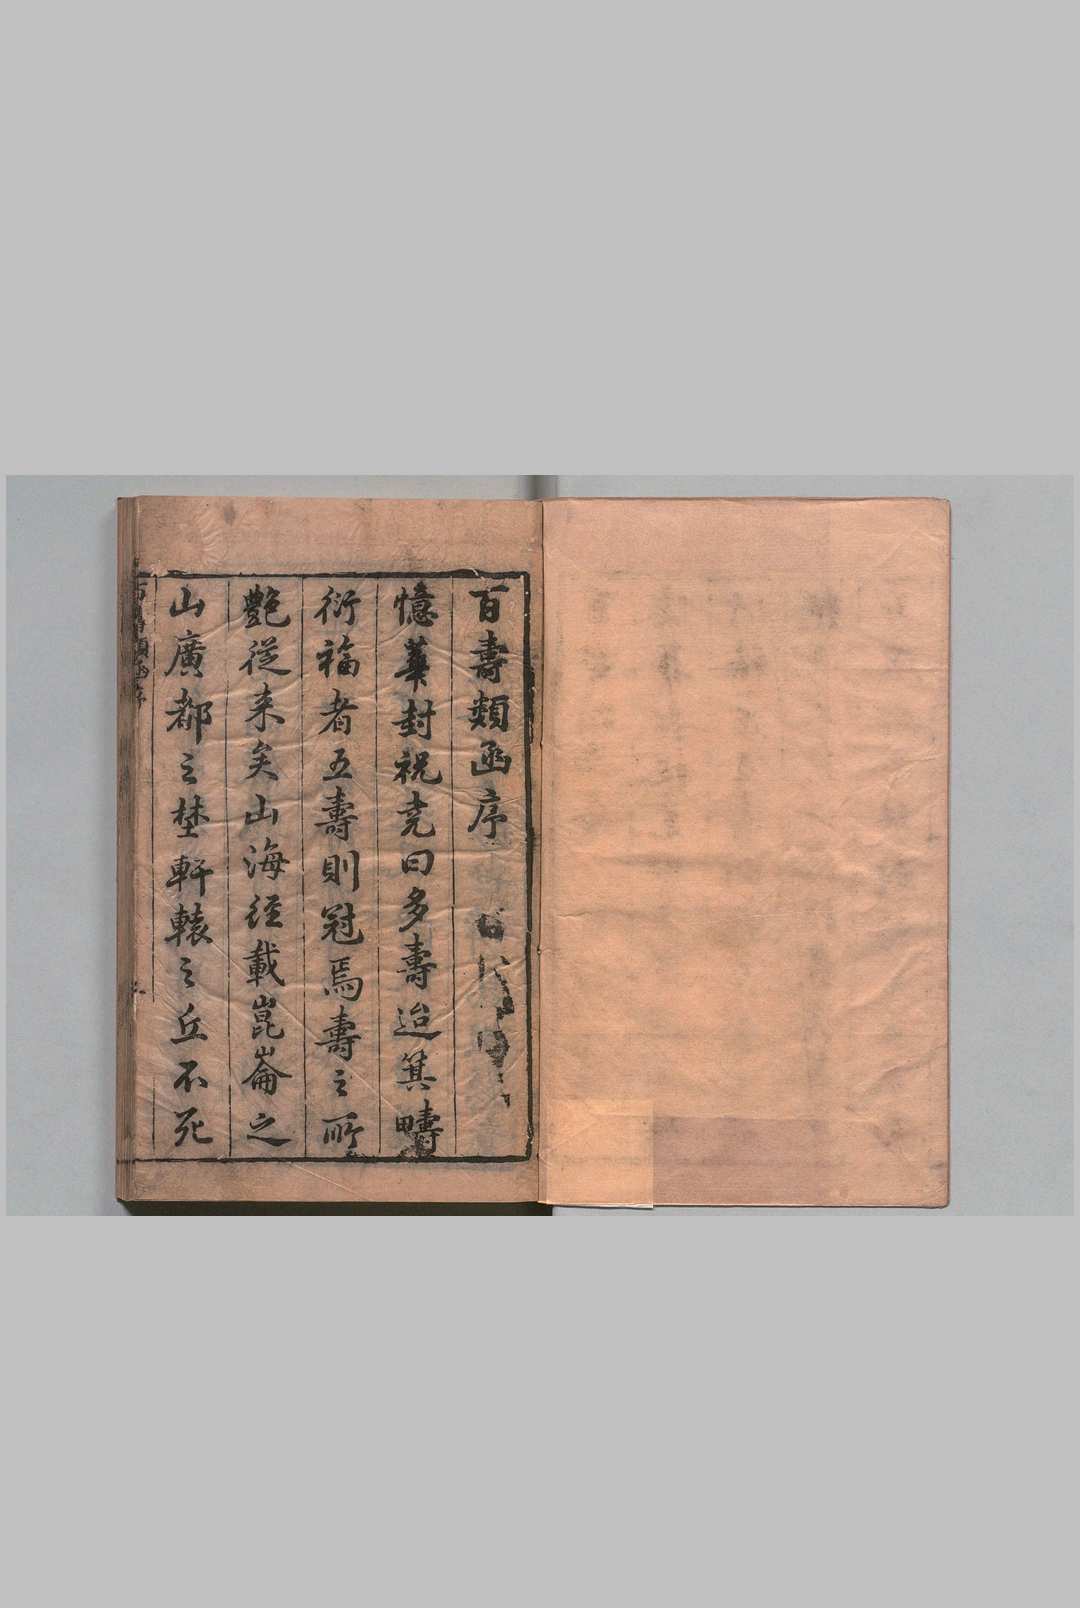 百壽類函序
憶華封祝堯曰多壽迨箕疇
衍福者五壽則冠焉壽之所
艷從来矣山海經載崑崙之
山廣都之埜軒轅之丘不死